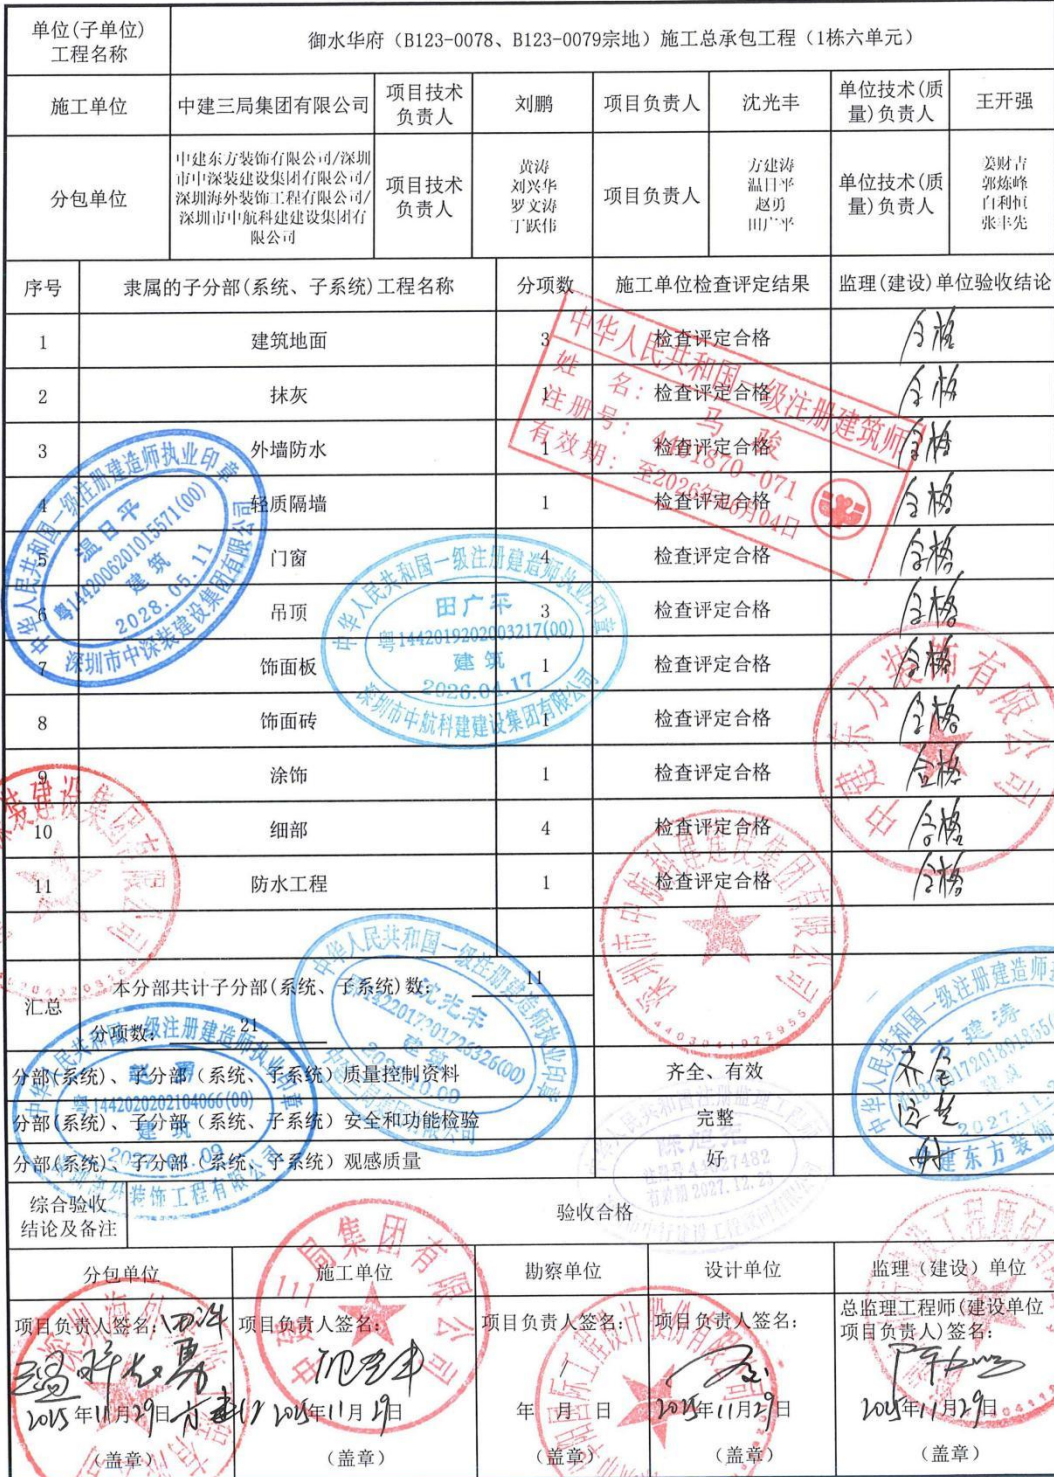 单位(子单位)
工程名称
御水华府（B123-0078、B123-0079宗地）施工总承包工程（1栋六单元）
施工单位
中建三局集团有限公司
项目技术
负责人
刘鹏
项目负责人
沈光丰
单位技术(质
量)负责人
王开强
分包单位
中建东方装饰有限公司/深圳
市中深装建设集团有限公司/
深圳海外装饰工程有限公司/
深圳市中航科建建设集团有
限公司
项目技术
负责人
黄涛
刘兴华
罗文涛
丁跃伟
项目负责人
方建涛
温日平
赵勇
田广平
单位技术(质
量)负责人
姜财吉
郭炼峰
白利恒
张丰先
序号 隶属的子分部(系统、子系统)工程名称 分项数 施工单位检查评定结果 监理(建设)单位验收结论
1 建筑地面 3 检查评定合格 合格
2 抹灰 1 检查评定合格 合格
3 外墙防水 1 检查评定合格 合格
4 轻质隔墙 1 检查评定合格 合格
5 门窗 4 检查评定合格 合格
6 吊顶 3 检查评定合格 合格
7 饰面板 1 检查评定合格 合格
8 饰面砖 1 检查评定合格 合格
9 涂饰 1 检查评定合格 合格
10 细部 4 检查评定合格 合格
11 防水工程 1 检查评定合格 合格
汇总
本分部共计子分部(系统、子系统)数: 11
分项数: 21
分部(系统)、子分部（系统、子系统）质量控制资料 齐全、有效 齐全
分部(系统)、子分部（系统、子系统）安全和功能检验 完整 完整
分部(系统)、子分部（系统、子系统）观感质量 好 好
综合验收
结论及备注
验收合格
分包单位 施工单位 勘察单位 设计单位 监理（建设）单位
项目负责人签名:
项目负责人签名:
项目负责人签名:
项目负责人签名:
总监理工程师(建设单位
项目负责人)签名:
2025年11月29日
2025年11月29日
年 月 日
2025年11月29日
2025年11月29日
（盖章） （盖章） （盖章） （盖章） （盖章）
中华人民共和国一级注册建筑师
姓名: 马骏
注册号: 4401870-071
有效期: 至2026年06月04日
中华人民共和国一级注册建造师执业印章
温日平
粤1442006201015571(00)
建筑
2028.05.11
深圳市中深装建设集团有限公司
中华人民共和国一级注册建造师执业印章
田广平
粤1442019202003217(00)
建筑
2026.04.17
深圳市中航科建建设集团有限公司
中建东方装饰有限公司
深圳市中航科建建设集团有限公司
中华人民共和国一级注册建造师执业印章
沈光丰
建筑
中华人民共和国一级注册建造师执业印章
赵勇
粤1442020202104066(00)
建筑